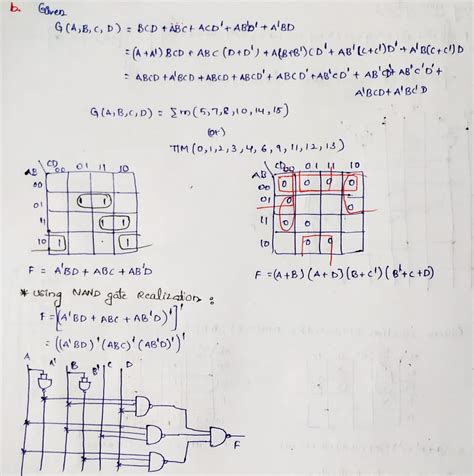 b. Given
G(A,B,C,D) = BCD + ABC + ACD' + AB'D' + A'BD
= (A+A')BCD + ABC(D+D') + A(B+B')CD' + AB'(C+C')D' + A'B(C+C')D
= ABCD + A'BCD + ABCD + ABCD' + ABCD' + AB'CD' + AB'CD' + AB'C'D' +
A'BCD + A'BC'D
G(A,B,C,D) = Σm(5,7,8,10,14,15)
(or)
ΠM(0,1,2,3,4,6,9,11,12,13)
AB CD 00 01 11 10
00
01 1 1
11 1 1
10 1 1
F = A'BD + ABC + AB'D
AB CD 00 01 11 10
00 0 0 0 0
01 0 0
11 0 0
10 0 0
F = (A+B)(A+D)(B+C')(B'+C+D)
* Using NAND gate Realization :
F = [(A'BD + ABC + AB'D)']'
= ((A'BD)' (ABC)' (AB'D)')'
A A' B B' C D
F